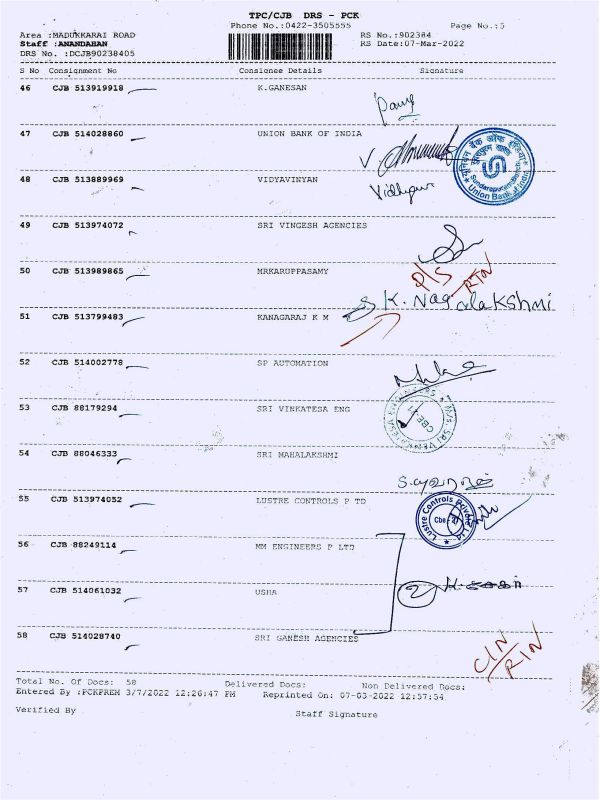 TPC/CJB DRS - PCK
Phone No.:0422-3505555
Page No.:5
Area :MADUKKARAI ROAD
RS No.:902384
Staff :ANANDAHAN
RS Date:07-Mar-2022
DRS No. :DCJB90238405
S No Consignment No Consignee Details Signature
46 CJB 513919918 K.GANESAN
47 CJB 514028860 UNION BANK OF INDIA
Union Bank of India
48 CJB 513889969 VIDYAVINYAN
49 CJB 513974072 SRI VINGESH AGENCIES
50 CJB 513989865 MRKARUPPASAMY
P/S RTN
K. Nagalakshmi
51 CJB 513799483 KANAGARAJ K M
52 CJB 514002778 SP AUTOMATION
53 CJB 88179294 SRI VINKATESA ENG
54 CJB 88046333 SRI MAHALAKSHMI
55 CJB 513974052 LUSTRE CONTROLS P TD
Lustre Controls Private Ltd
Cbe - 21
56 CJB 88249114 MM ENGINEERS P LTD
57 CJB 514061032 USHA
2
58 CJB 514028740 SRI GANESH AGENCIES
Total No. Of Docs: 58 Delivered Docs: Non Delivered Docs:
Entered By :PCKPREM 3/7/2022 12:26:47 PM Reprinted On: 07-03-2022 12:57:54
Verified By Staff Signature